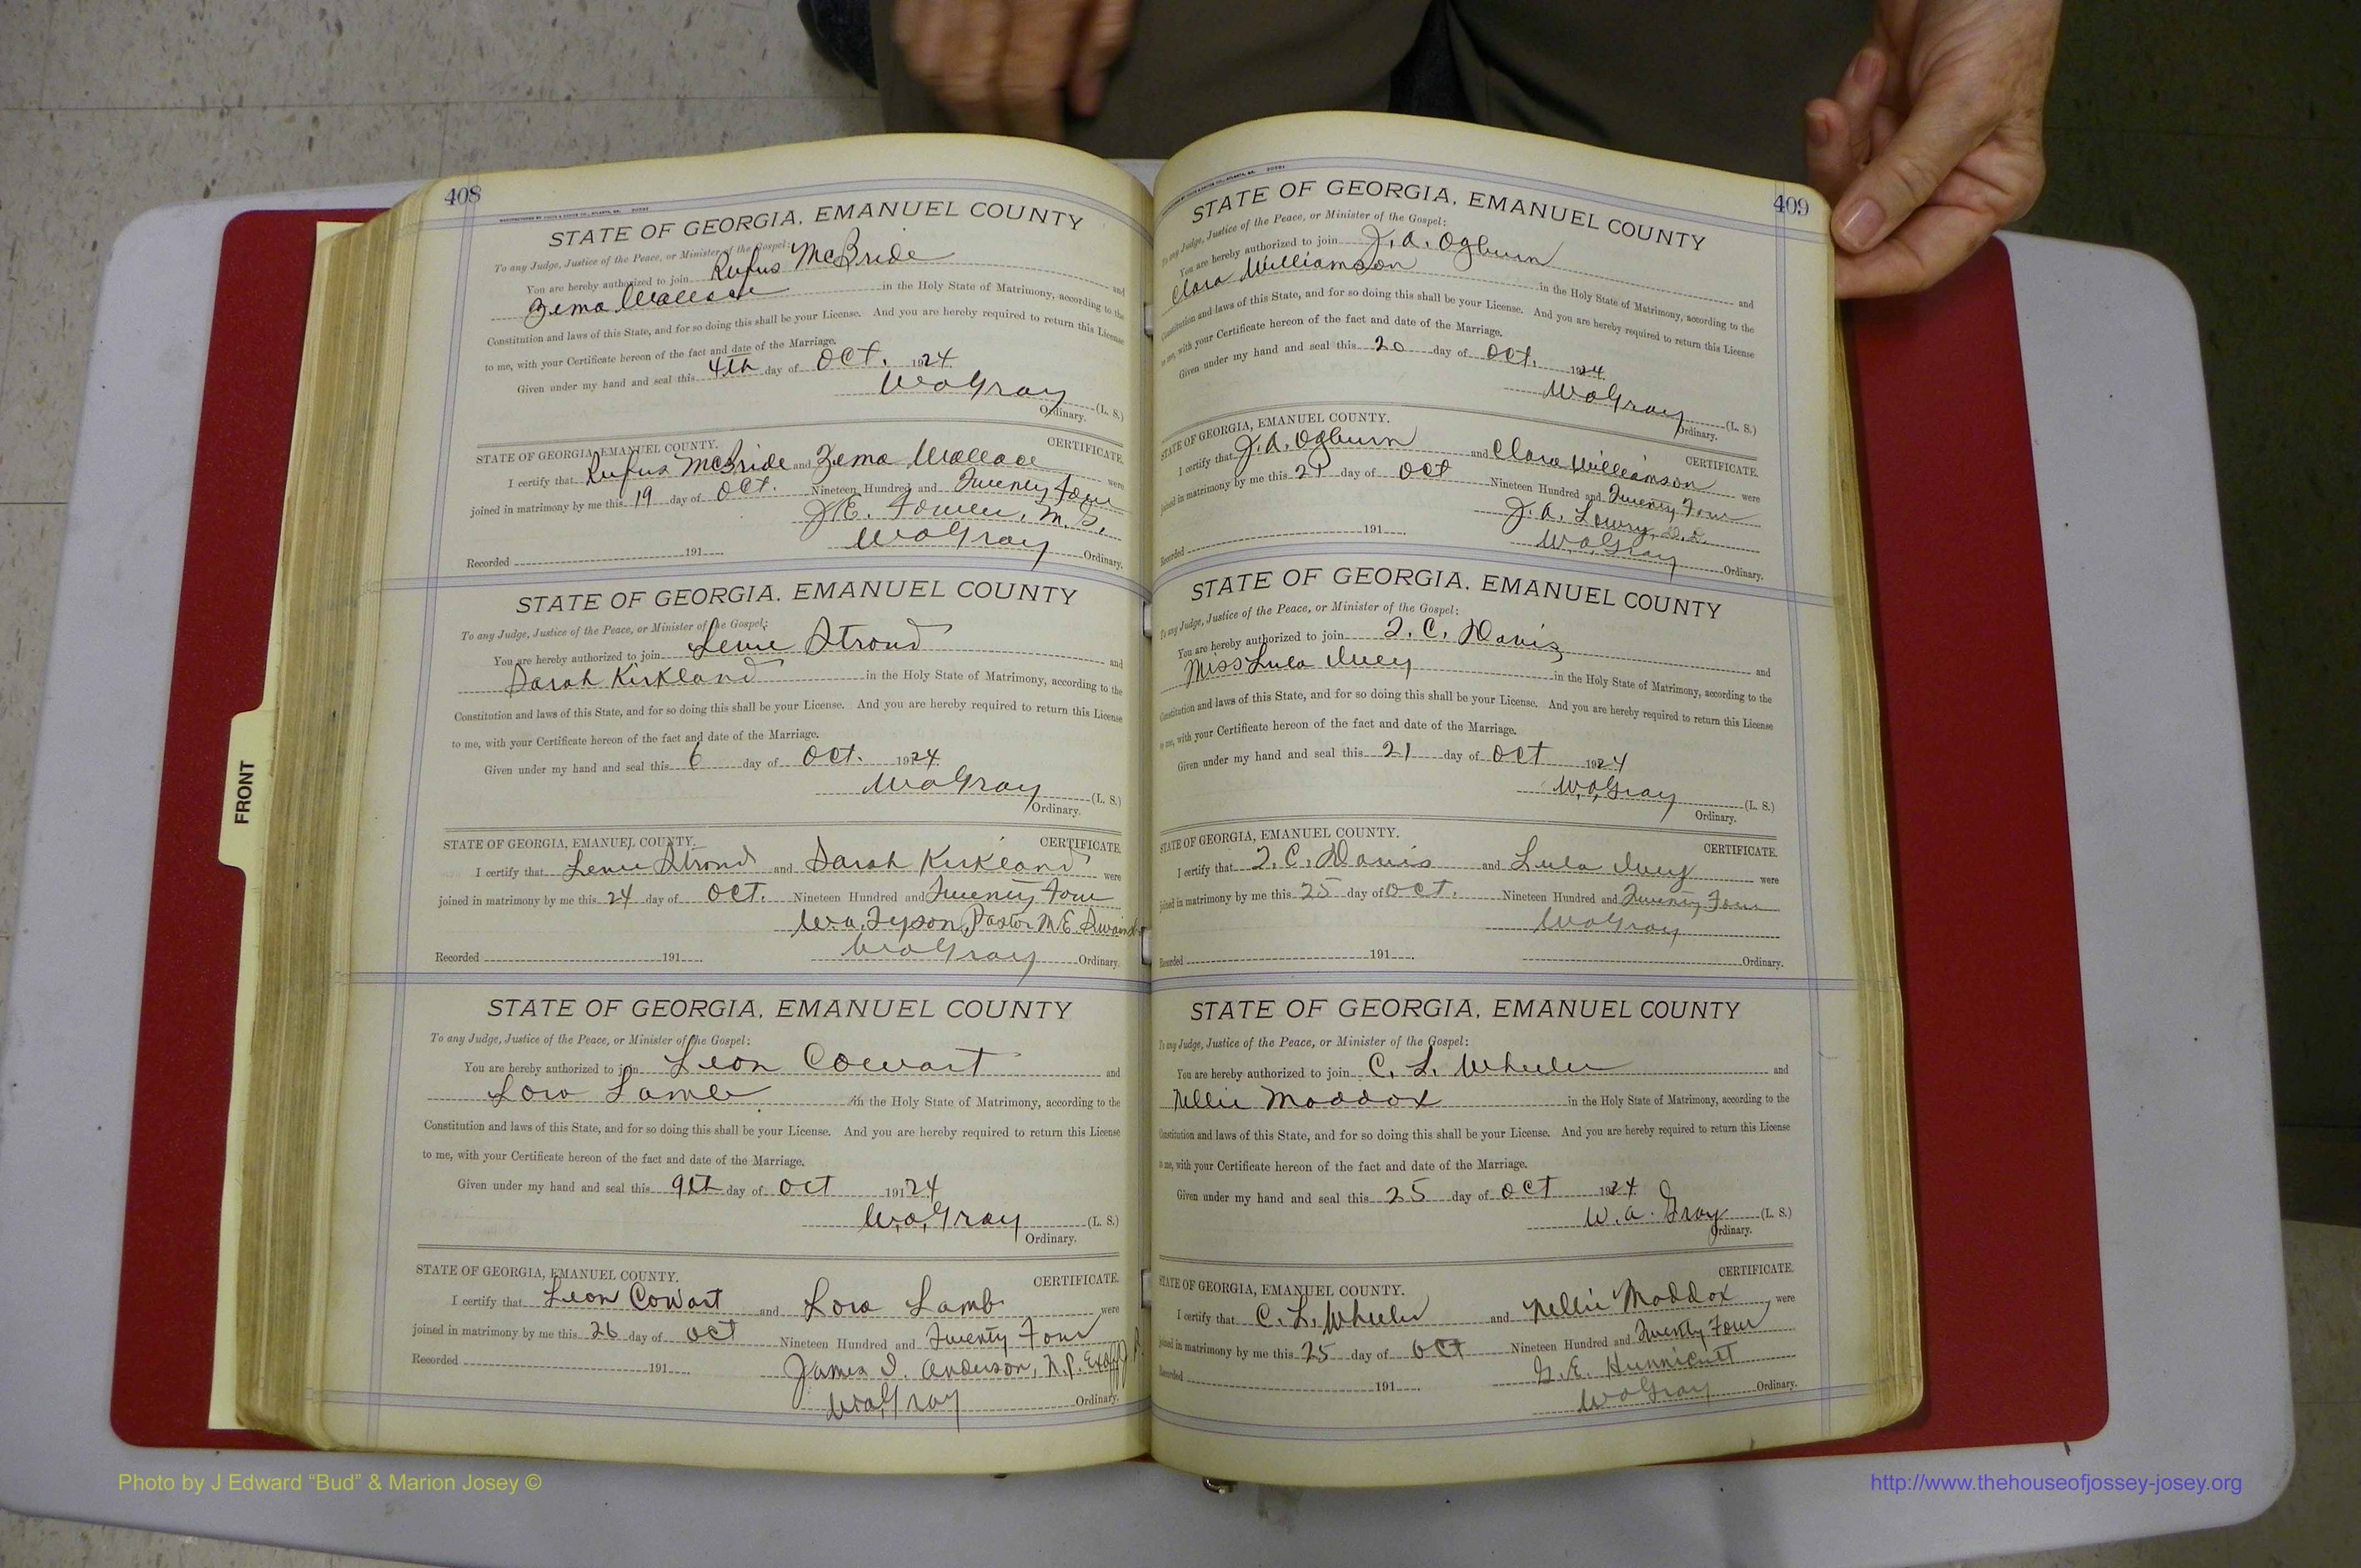 408
STATE OF GEORGIA, EMANUEL COUNTY
To any Judge, Justice of the Peace, or Minister of the Gospel:
You are hereby authorized to join Rufus McBride and
Zema Wallace in the Holy State of Matrimony, according to the
Constitution and laws of this State, and for so doing this shall be your License. And you are hereby required to return this License
to me, with your Certificate hereon of the fact and date of the Marriage.
Given under my hand and seal this 4th day of Oct. 1924
W.A. Gray (L. S.)
Ordinary.
STATE OF GEORGIA, EMANUEL COUNTY. CERTIFICATE.
I certify that Rufus McBride and Zema Wallace were
joined in matrimony by me this 19 day of Oct. Nineteen Hundred and Twenty Four
J.E.
Recorded 191 W.A. Gray Ordinary.
STATE OF GEORGIA, EMANUEL COUNTY
To any Judge, Justice of the Peace, or Minister of the Gospel:
You are hereby authorized to join Stroud and
Sarah Kirkland in the Holy State of Matrimony, according to the
Constitution and laws of this State, and for so doing this shall be your License. And you are hereby required to return this License
to me, with your Certificate hereon of the fact and date of the Marriage.
Given under my hand and seal this 6 day of Oct. 1924
W.A. Gray (L. S.)
Ordinary.
STATE OF GEORGIA, EMANUEL COUNTY. CERTIFICATE.
I certify that Stroud and Sarah Kirkland were
joined in matrimony by me this 24 day of Oct. Nineteen Hundred and Twenty Four
W.A. Tyson, Pastor M.E.
Recorded 191 W.A. Gray Ordinary.
STATE OF GEORGIA, EMANUEL COUNTY
To any Judge, Justice of the Peace, or Minister of the Gospel:
You are hereby authorized to join Leon Cowart and
Lora Lamb in the Holy State of Matrimony, according to the
Constitution and laws of this State, and for so doing this shall be your License. And you are hereby required to return this License
to me, with your Certificate hereon of the fact and date of the Marriage.
Given under my hand and seal this 9th day of Oct 19124
W.A. Gray (L. S.)
Ordinary.
STATE OF GEORGIA, EMANUEL COUNTY. CERTIFICATE.
I certify that Leon Cowart and Lora Lamb were
joined in matrimony by me this 26 day of Oct Nineteen Hundred and Twenty Four
Recorded 191 James I. Anderson, N.P.
W.A. Gray Ordinary.
409
STATE OF GEORGIA, EMANUEL COUNTY
To any Judge, Justice of the Peace, or Minister of the Gospel:
You are hereby authorized to join J.A. Ogburn and
Clara Williamson in the Holy State of Matrimony, according to the
Constitution and laws of this State, and for so doing this shall be your License. And you are hereby required to return this License
to me, with your Certificate hereon of the fact and date of the Marriage.
Given under my hand and seal this 20 day of Oct. 1924
W.A. Gray (L. S.)
Ordinary.
STATE OF GEORGIA, EMANUEL COUNTY. CERTIFICATE.
I certify that J.A. Ogburn and Clara Williamson were
joined in matrimony by me this 21 day of Oct Nineteen Hundred and Twenty Four
J.A. Lowry
Recorded 191 W.A. Gray Ordinary.
STATE OF GEORGIA, EMANUEL COUNTY
To any Judge, Justice of the Peace, or Minister of the Gospel:
You are hereby authorized to join C. Davis and
Miss Lula Ivey in the Holy State of Matrimony, according to the
Constitution and laws of this State, and for so doing this shall be your License. And you are hereby required to return this License
to me, with your Certificate hereon of the fact and date of the Marriage.
Given under my hand and seal this 21 day of Oct 1924
W.A. Gray (L. S.)
Ordinary.
STATE OF GEORGIA, EMANUEL COUNTY. CERTIFICATE.
I certify that C. Davis and Lula Ivey were
joined in matrimony by me this 25 day of Oct. Nineteen Hundred and Twenty Four
W.A. Gray
Recorded 191 Ordinary.
STATE OF GEORGIA, EMANUEL COUNTY
To any Judge, Justice of the Peace, or Minister of the Gospel:
You are hereby authorized to join C. L. Wheeler and
Nellie Maddox in the Holy State of Matrimony, according to the
Constitution and laws of this State, and for so doing this shall be your License. And you are hereby required to return this License
to me, with your Certificate hereon of the fact and date of the Marriage.
Given under my hand and seal this 25 day of Oct 1924
W. A. Gray (L. S.)
Ordinary.
STATE OF GEORGIA, EMANUEL COUNTY. CERTIFICATE.
I certify that C. L. Wheeler and Nellie Maddox were
joined in matrimony by me this 25 day of Oct Nineteen Hundred and Twenty Four
G.E. Hunnicutt
Recorded 191 W.A. Gray Ordinary.
FRONT
Photo by J Edward “Bud” & Marion Josey ©
http://www.thehouseofjossey-josey.org